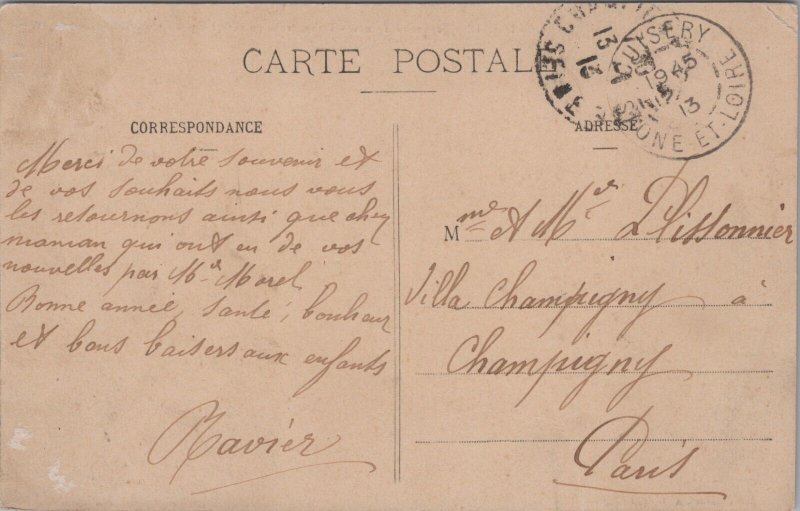 CARTE POSTALE
CORRESPONDANCE
Merci de votre souvenir et
de vos souhaits nous vous
les retournons ainsi que chez
maman qui ont eu de vos
nouvelles par Mr Morel
Bonne année, santé, bonheur
et bons baisers aux enfants
Ravier
ADRESSE
Mme et Mr Plissonnier
Villa Champigny à
Champigny
Paris
CUISERY
SAONE-ET-LOIRE
13